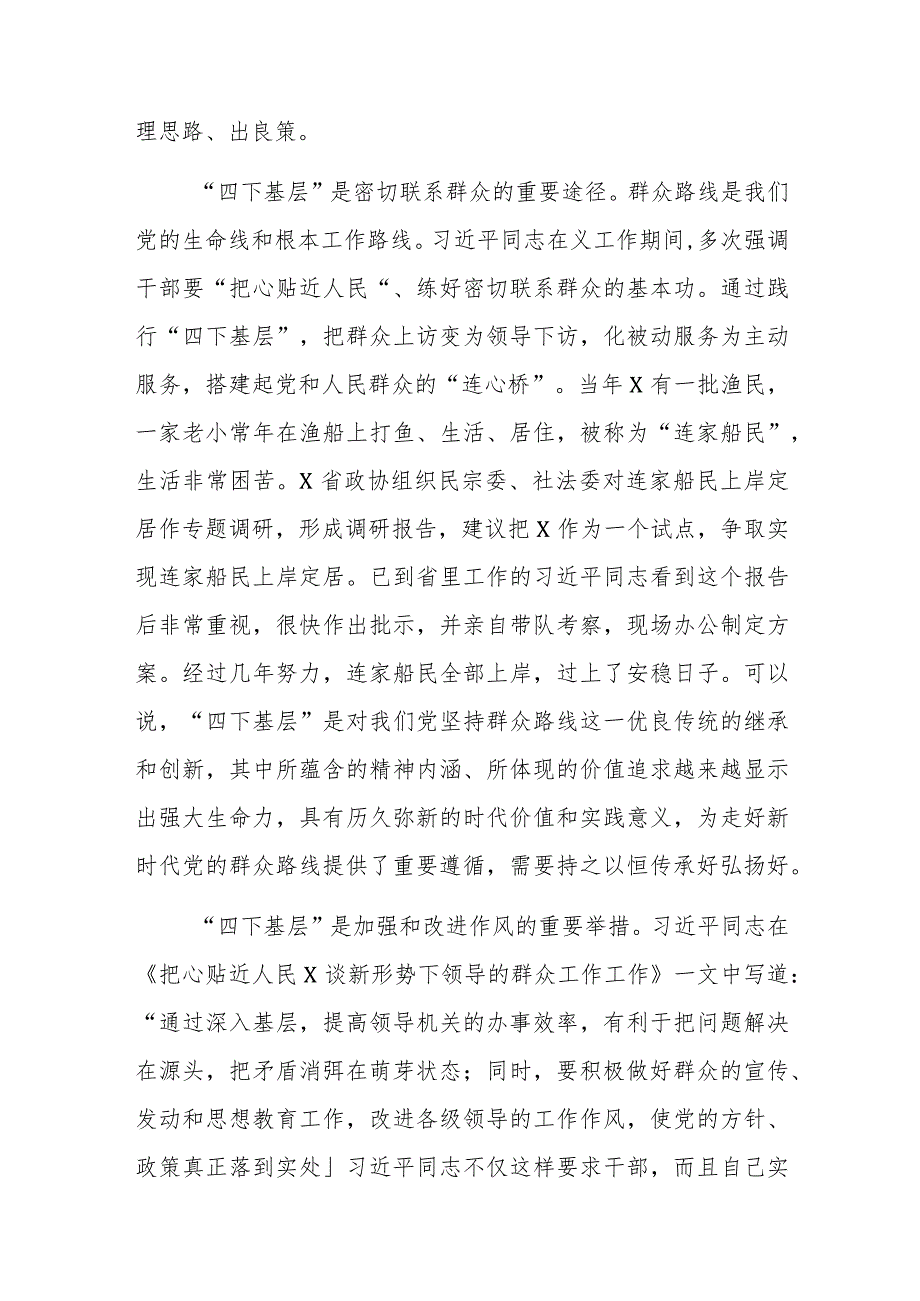 理思路、出良策。
“四下基层”是密切联系群众的重要途径。群众路线是我们
党的生命线和根本工作路线。习近平同志在义工作期间,多次强调
干部要“把心贴近人民“、练好密切联系群众的基本功。通过践
行“四下基层”，把群众上访变为领导下访，化被动服务为主动
服务，搭建起党和人民群众的“连心桥”。当年X有一批渔民，
一家老小常年在渔船上打鱼、生活、居住，被称为“连家船民”，
生活非常困苦。X省政协组织民宗委、社法委对连家船民上岸定
居作专题调研，形成调研报告，建议把X作为一个试点，争取实
现连家船民上岸定居。已到省里工作的习近平同志看到这个报告
后非常重视，很快作出批示，并亲自带队考察，现场办公制定方
案。经过几年努力，连家船民全部上岸，过上了安稳日子。可以
说，“四下基层”是对我们党坚持群众路线这一优良传统的继承
和创新，其中所蕴含的精神内涵、所体现的价值追求越来越显示
出强大生命力，具有历久弥新的时代价值和实践意义，为走好新
时代党的群众路线提供了重要遵循，需要持之以恒传承好弘扬好。
“四下基层”是加强和改进作风的重要举措。习近平同志在
《把心贴近人民X谈新形势下领导的群众工作工作》一文中写道：
“通过深入基层，提高领导机关的办事效率，有利于把问题解决
在源头，把矛盾消弭在萌芽状态；同时，要积极做好群众的宣传、
发动和思想教育工作，改进各级领导的工作作风，使党的方针、
政策真正落到实处」习近平同志不仅这样要求干部，而且自己实